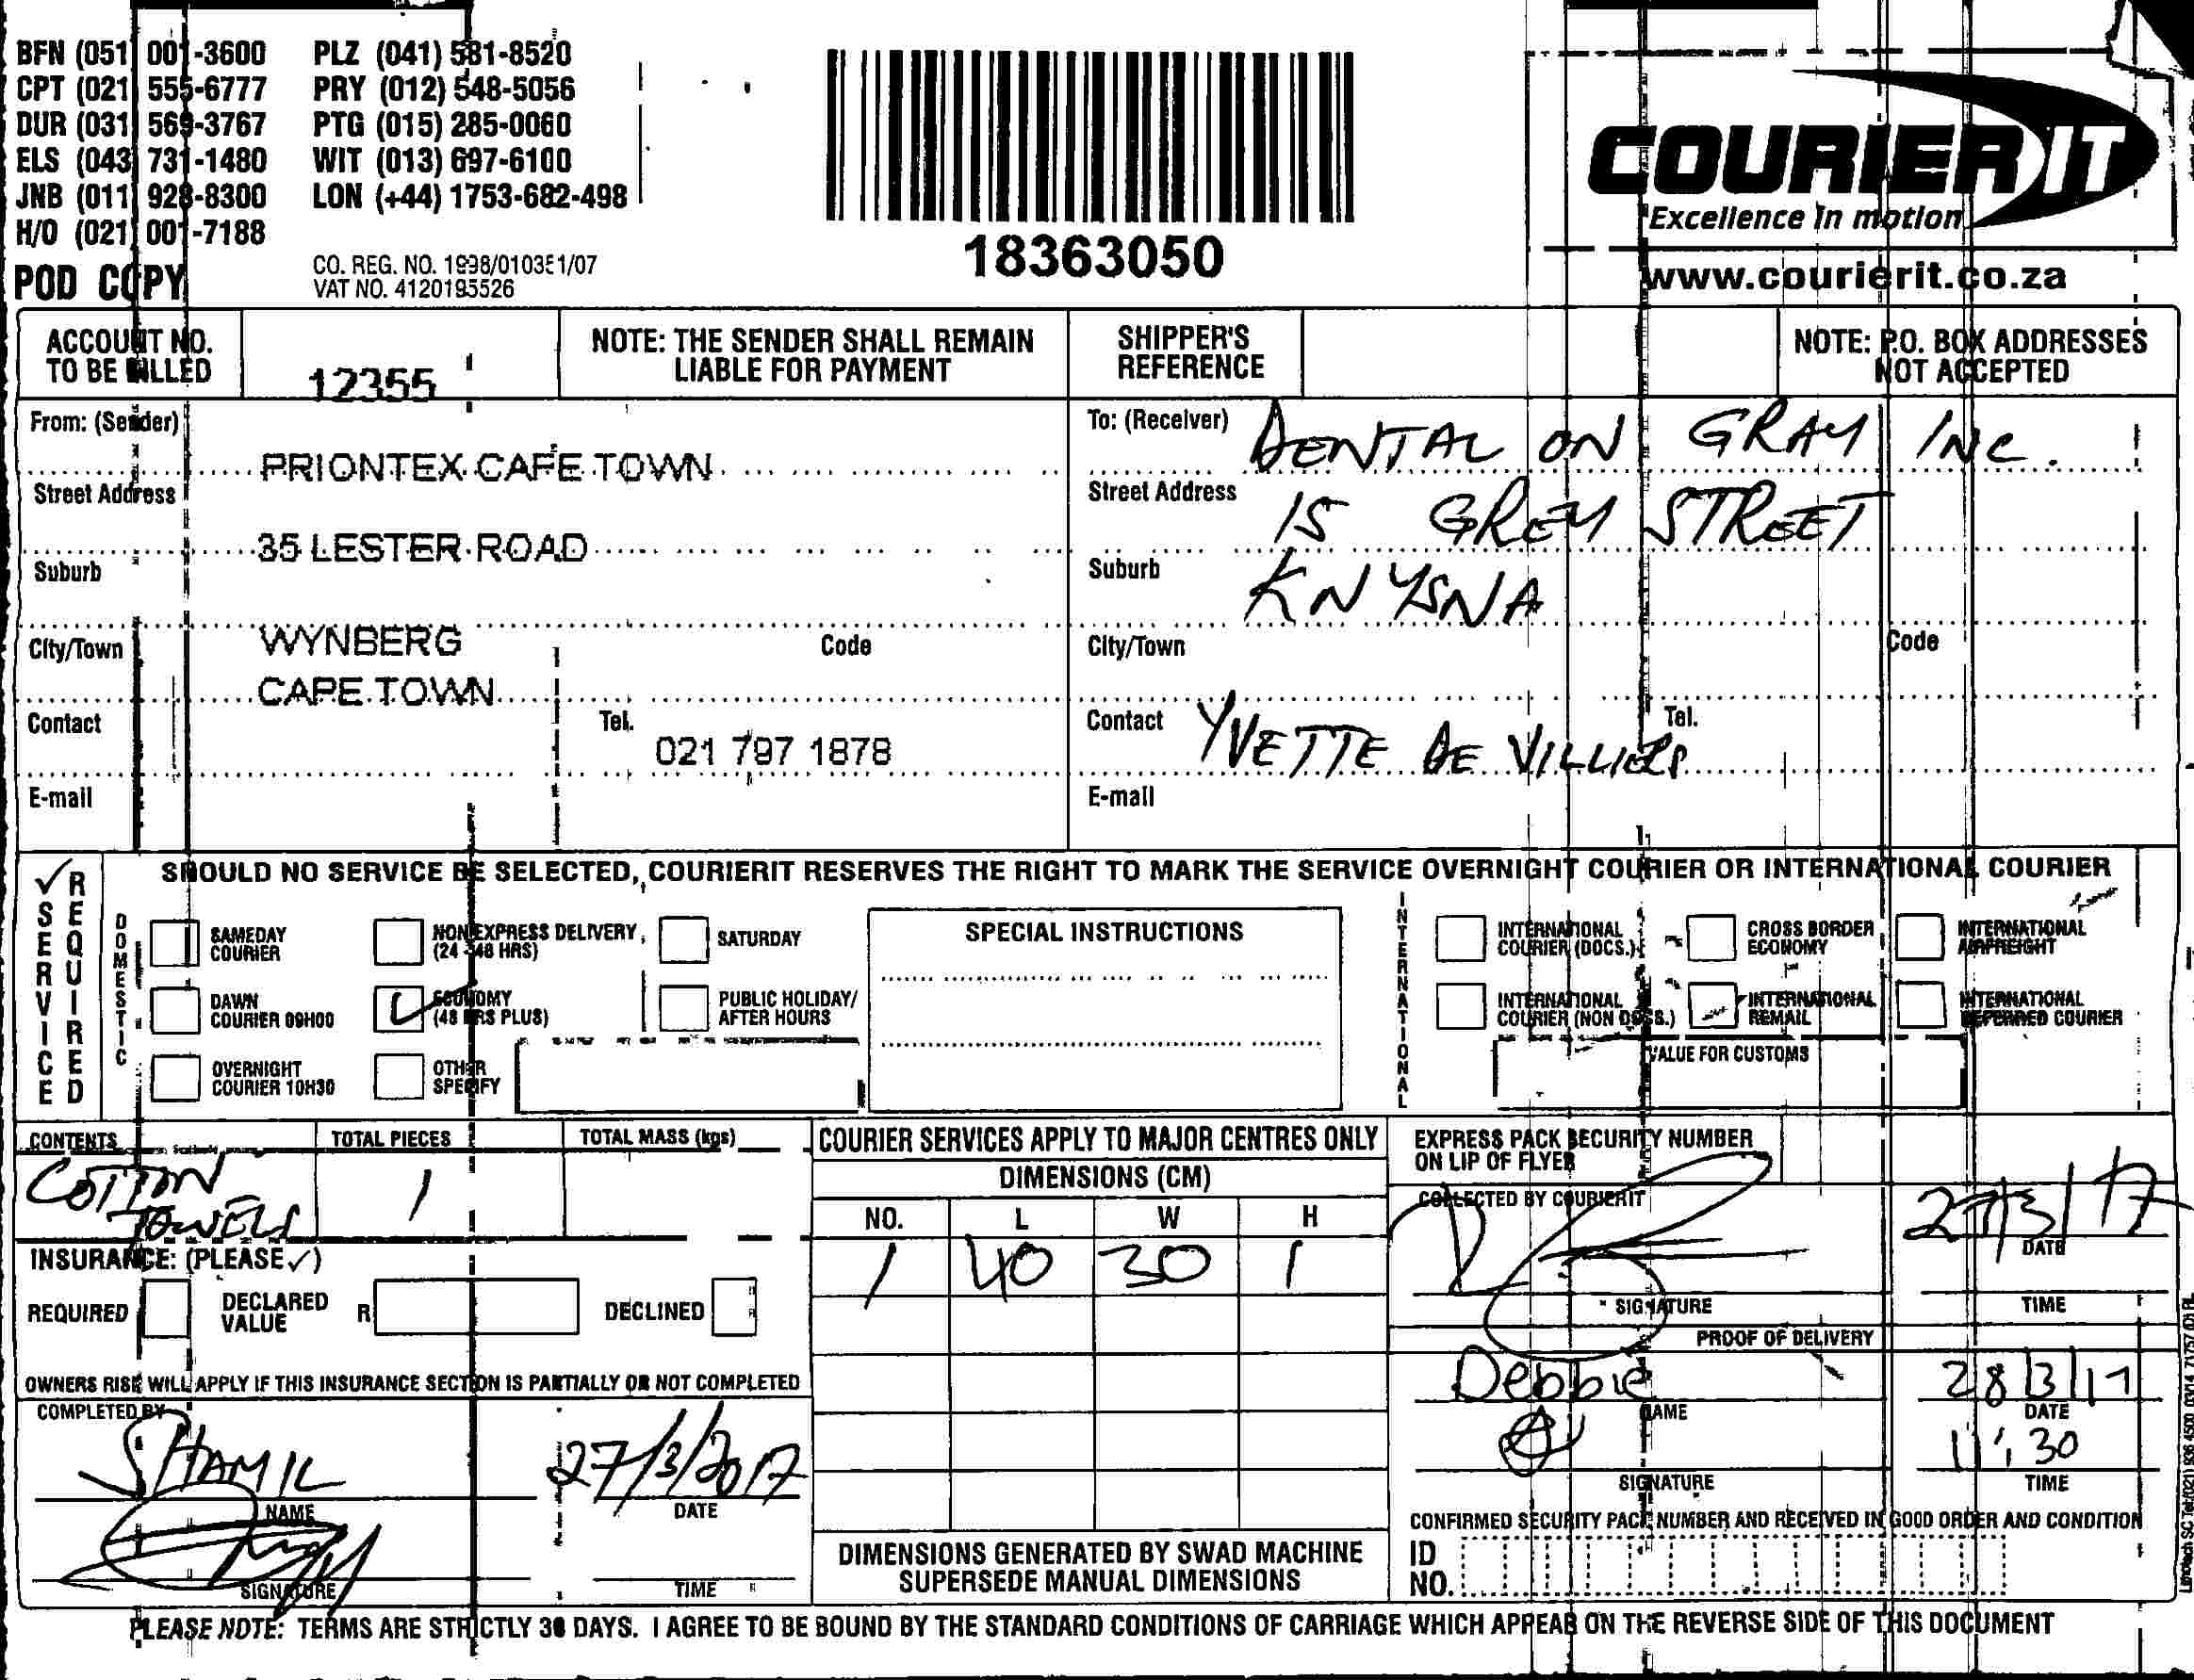 BFN (051) 001-3600 PLZ (041) 581-8520
CPT (021) 555-6777 PRY (012) 548-5056
DUR (031) 569-3767 PTG (015) 285-0060
ELS (043) 731-1480 WIT (013) 697-6100
JNB (011) 928-8300 LON (+44) 1753-682-498
H/O (021) 001-7188
POD COPY
CO. REG. NO. 1998/010351/07
VAT NO. 4120195526
18363050
COURIER IT
"Excellence in motion
www.courierit.co.za
ACCOUNT NO. TO BE BILLED
12355
NOTE: THE SENDER SHALL REMAIN LIABLE FOR PAYMENT
SHIPPER'S REFERENCE
NOTE: P.O. BOX ADDRESSES NOT ACCEPTED
From: (Sender)
PRIONTEX CAPE TOWN
Street Address
35 LESTER ROAD
Suburb
WYNBERG
City/Town Code
CAPE TOWN
Contact Tel.
021 797 1878
E-mail
To: (Receiver) DENTAL ON GRAY INC.
Street Address 15 GREY STREET
Suburb KNYSNA
City/Town Code
Contact YVETTE DE VILLIERS Tel.
E-mail
✓ SERVICE REQUIRED
SHOULD NO SERVICE BE SELECTED, COURIERIT RESERVES THE RIGHT TO MARK THE SERVICE OVERNIGHT COURIER OR INTERNATIONAL COURIER
DOMESTIC
SAMEDAY COURIER
NON EXPRESS DELIVERY (24 - 48 HRS)
SATURDAY
DAWN COURIER 09H00
ECONOMY (48 HRS PLUS)
PUBLIC HOLIDAY/ AFTER HOURS
OVERNIGHT COURIER 10H30
OTHER SPECIFY
SPECIAL INSTRUCTIONS
INTERNATIONAL
INTERNATIONAL COURIER (DOCS.)
CROSS BORDER ECONOMY
INTERNATIONAL AIRFREIGHT
INTERNATIONAL COURIER (NON DOCS.)
INTERNATIONAL REMAIL
INTERNATIONAL DEFERRED COURIER
VALUE FOR CUSTOMS
CONTENTS TOTAL PIECES TOTAL MASS (kgs)
COTTON TOWELS 1
INSURANCE: (PLEASE ✓)
REQUIRED DECLARED VALUE R DECLINED
OWNERS RISK WILL APPLY IF THIS INSURANCE SECTION IS PARTIALLY OR NOT COMPLETED
COMPLETED BY
SHAMIL 27/3/2017
NAME DATE
SIGNATURE TIME
COURIER SERVICES APPLY TO MAJOR CENTRES ONLY
DIMENSIONS (CM)
NO. L W H
1 40 30 1
DIMENSIONS GENERATED BY SWAD MACHINE
SUPERSEDE MANUAL DIMENSIONS
EXPRESS PACK SECURITY NUMBER ON LIP OF FLYER
COLLECTED BY COURIERIT
27/3/17
DATE
SIGNATURE TIME
PROOF OF DELIVERY
Debbie 28/3/17
NAME DATE
11:30
SIGNATURE TIME
CONFIRMED SECURITY PACK NUMBER AND RECEIVED IN GOOD ORDER AND CONDITION
ID NO.
PLEASE NOTE: TERMS ARE STRICTLY 30 DAYS. I AGREE TO BE BOUND BY THE STANDARD CONDITIONS OF CARRIAGE WHICH APPEAR ON THE REVERSE SIDE OF THIS DOCUMENT